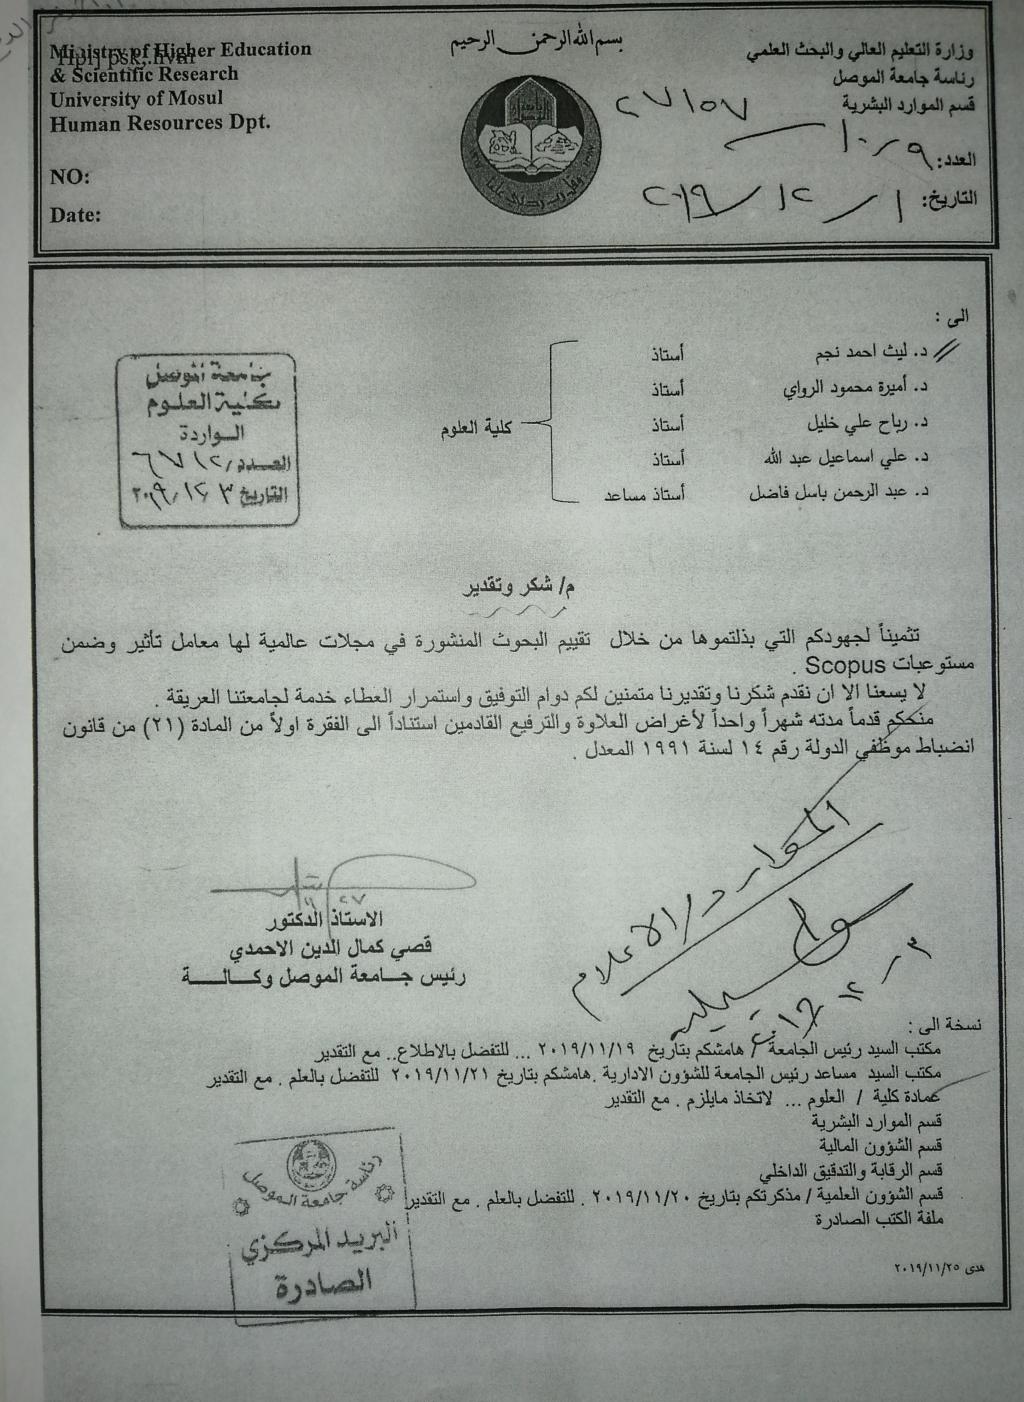 Ministry of Higher Education
& Scientific Research
University of Mosul
Human Resources Dpt.
NO:
Date:
بسم الله الرحمن الرحيم
وزارة التعليم العالي والبحث العلمي
رئاسة جامعة الموصل
قسم الموارد البشرية
٢٧١٥٧
العدد: ٩/١٠
التاريخ: ١/١٢/٢٠١٩
الى :
د. ليث احمد نجم أستاذ
د. أميرة محمود الرواي أستاذ
د. رباح علي خليل أستاذ
د. علي اسماعيل عبد الله أستاذ
د. عبد الرحمن باسل فاضل أستاذ مساعد
كلية العلوم
جامعة الموصل
كلية العلوم
الواردة
العدد/ ٦٧١٢
التاريخ ٣/١٢/٢٠١٩
م/ شكر وتقدير
تثميناً لجهودكم التي بذلتموها من خلال تقييم البحوث المنشورة في مجلات عالمية لها معامل تأثير وضمن
مستوعبات Scopus .
لا يسعنا الا ان نقدم شكرنا وتقديرنا متمنين لكم دوام التوفيق واستمرار العطاء خدمة لجامعتنا العريقة .
منحكم قدماً مدته شهراً واحداً لأغراض العلاوة والترفيع القادمين استناداً الى الفقرة اولاً من المادة (٢١) من قانون
انضباط موظفي الدولة رقم ١٤ لسنة ١٩٩١ المعدل .
الموارد/الاعلام
الاستاذ الدكتور
قصي كمال الدين الاحمدي
رئيس جامعة الموصل وكالة
نسخة الى :
مكتب السيد رئيس الجامعة / هامشكم بتاريخ ٢٠١٩/١١/١٩ ... للتفضل بالاطلاع.. مع التقدير
مكتب السيد مساعد رئيس الجامعة للشؤون الادارية .هامشكم بتاريخ ٢٠١٩/١١/٢١ للتفضل بالعلم . مع التقدير
عمادة كلية / العلوم ... لاتخاذ مايلزم . مع التقدير
قسم الموارد البشرية
قسم الشؤون المالية
قسم الرقابة والتدقيق الداخلي
قسم الشؤون العلمية / مذكرتكم بتاريخ ٢٠١٩/١١/٢٠ . للتفضل بالعلم . مع التقدير
ملفة الكتب الصادرة
رئاسة جامعة الموصل
البريد المركزي
الصادرة
هدى ٢٠١٩/١١/٢٥